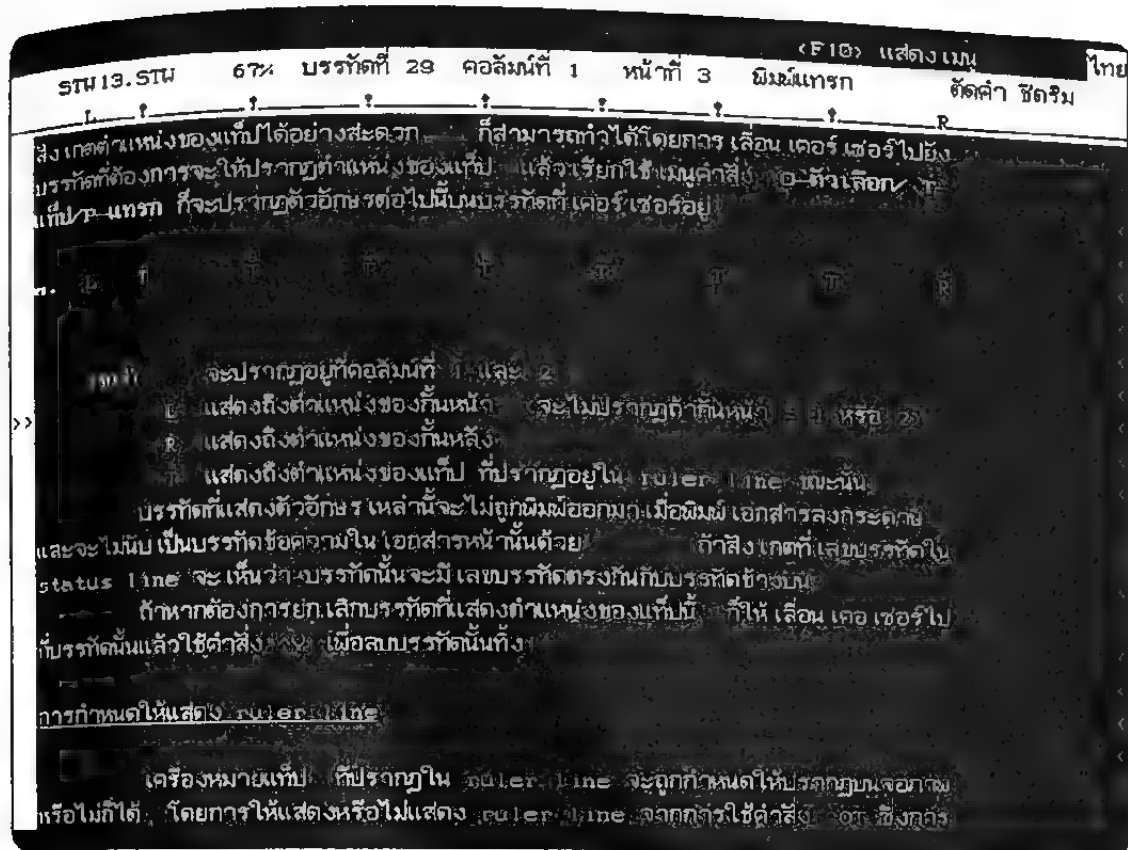 <F10> แสดงเมนู
STW13.STW 67% บรรทัดที่ 29 คอลัมน์ที่ 1 หน้าที่ 3 พิมพ์แทรก ตัดคำ ชิดริม ไทย
L R
สังเกตตำแหน่งของแท็ปได้อย่างสะดวก ก็สามารถทำได้โดยการเลื่อนเคอร์เซอร์ไปยัง
บรรทัดที่ต้องการจะให้ปรากฏตำแหน่งของแท็ป แล้วเรียกใช้เมนูคำสั่ง O-ตัวเลือก/ T-
แท็ป/P-แทรก ก็จะปรากฏตัวอักษรต่อไปนี้บนบรรทัดที่เคอร์เซอร์อยู่
L T T T T T T T R
จะปรากฏอยู่ที่คอลัมน์ที่ 1 และ 2
L แสดงถึงตำแหน่งของกั้นหน้า จะไม่ปรากฏถ้ากั้นหน้า = 1 หรือ 2)
R แสดงถึงตำแหน่งของกั้นหลัง
T แสดงถึงตำแหน่งของแท็ป ที่ปรากฏอยู่ใน ruler line ขณะนั้น
บรรทัดที่แสดงตัวอักษรเหล่านี้จะไม่ถูกพิมพ์ออกมาเมื่อพิมพ์เอกสารลงกระดาษ
และจะไม่นับเป็นบรรทัดข้อความในเอกสารหน้านั้นด้วย ถ้าสังเกตที่เลขบรรทัดใน
status line จะเห็นว่า บรรทัดนั้นจะมีเลขบรรทัดตรงกันกับบรรทัดข้างบน
ถ้าหากต้องการยกเลิกบรรทัดที่แสดงตำแหน่งของแท็ปนี้ ก็ให้เลื่อนเคอเซอร์ไป
ที่บรรทัดนั้นแล้วใช้คำสั่ง เพื่อลบบรรทัดนั้นทิ้ง
การกำหนดให้แสดง ruler line
เครื่องหมายแท็ป ที่ปรากฏใน ruler line จะถูกกำหนดให้ปรากฏบนจอภาพ
หรือไม่ก็ได้ โดยการให้แสดงหรือไม่แสดง ruler line จากการใช้คำสั่ง ซึ่งการ